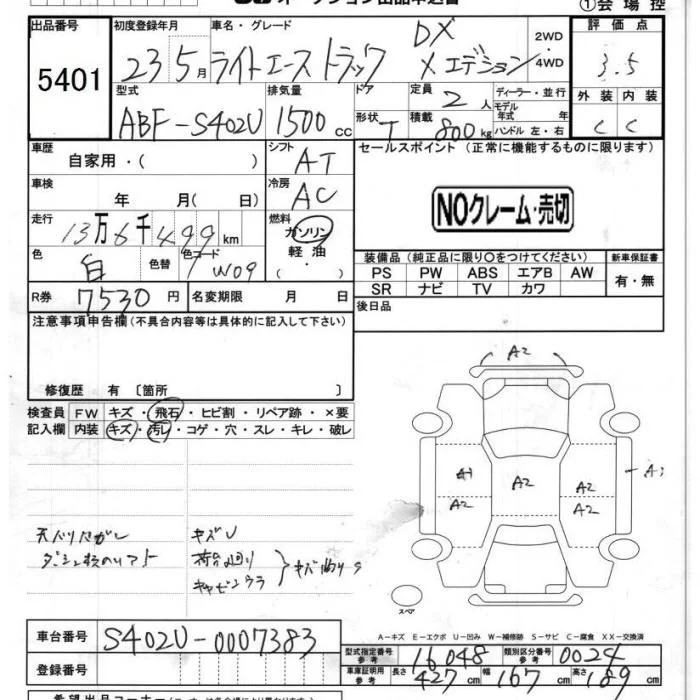 ①会場控
出品番号
5401
初度登録年月
23 5月
車名・グレード
ライトエーストラック
DX
Xエデション
2WD
4WD
評価点
3.5
外装 内装
C C
型式
ABF-S402U
排気量
1500cc
ドア
形状 T
定員 2人
積載 800kg
ディーラー・並行
モデル年式 年
ハンドル 左・右
車歴
自家用・( )
シフト
AT
セールスポイント (正常に機能するものに限ります)
NOクレーム・売切
車検
年 月( 日)
冷房
AC
走行
13万6千499km
燃料
ガソリン
軽油
( ・ )
色
白
色替
色コード
W09
装備品 (純正品に限り○をつけてください)
新車保証書
PS PW ABS エアB AW
SR ナビ TV カワ
有・無
R券 7530円
名変期限 月 日
後日品
注意事項申告欄(不具合内容等は具体的に記入して下さい)
修復歴 有 〔箇所 〕
検査員
記入欄
FW キズ・飛石・ヒビ割・リペア跡・×要
内装 キズ・汚レ・コゲ・穴・スレ・キレ・破レ
A2
A1
A2
A2
A2
A2
キズU
スペア
A-キズ E-エクボ U-凹み W-補修跡 S-サビ C-腐食 XX-交換済
車台番号
S402U-0007383
登録番号
型式指定番号
参考
16048
類別区分番号
参考
0024
車庫証明用
参考
長さ 427cm
幅 167cm
高さ 189cm